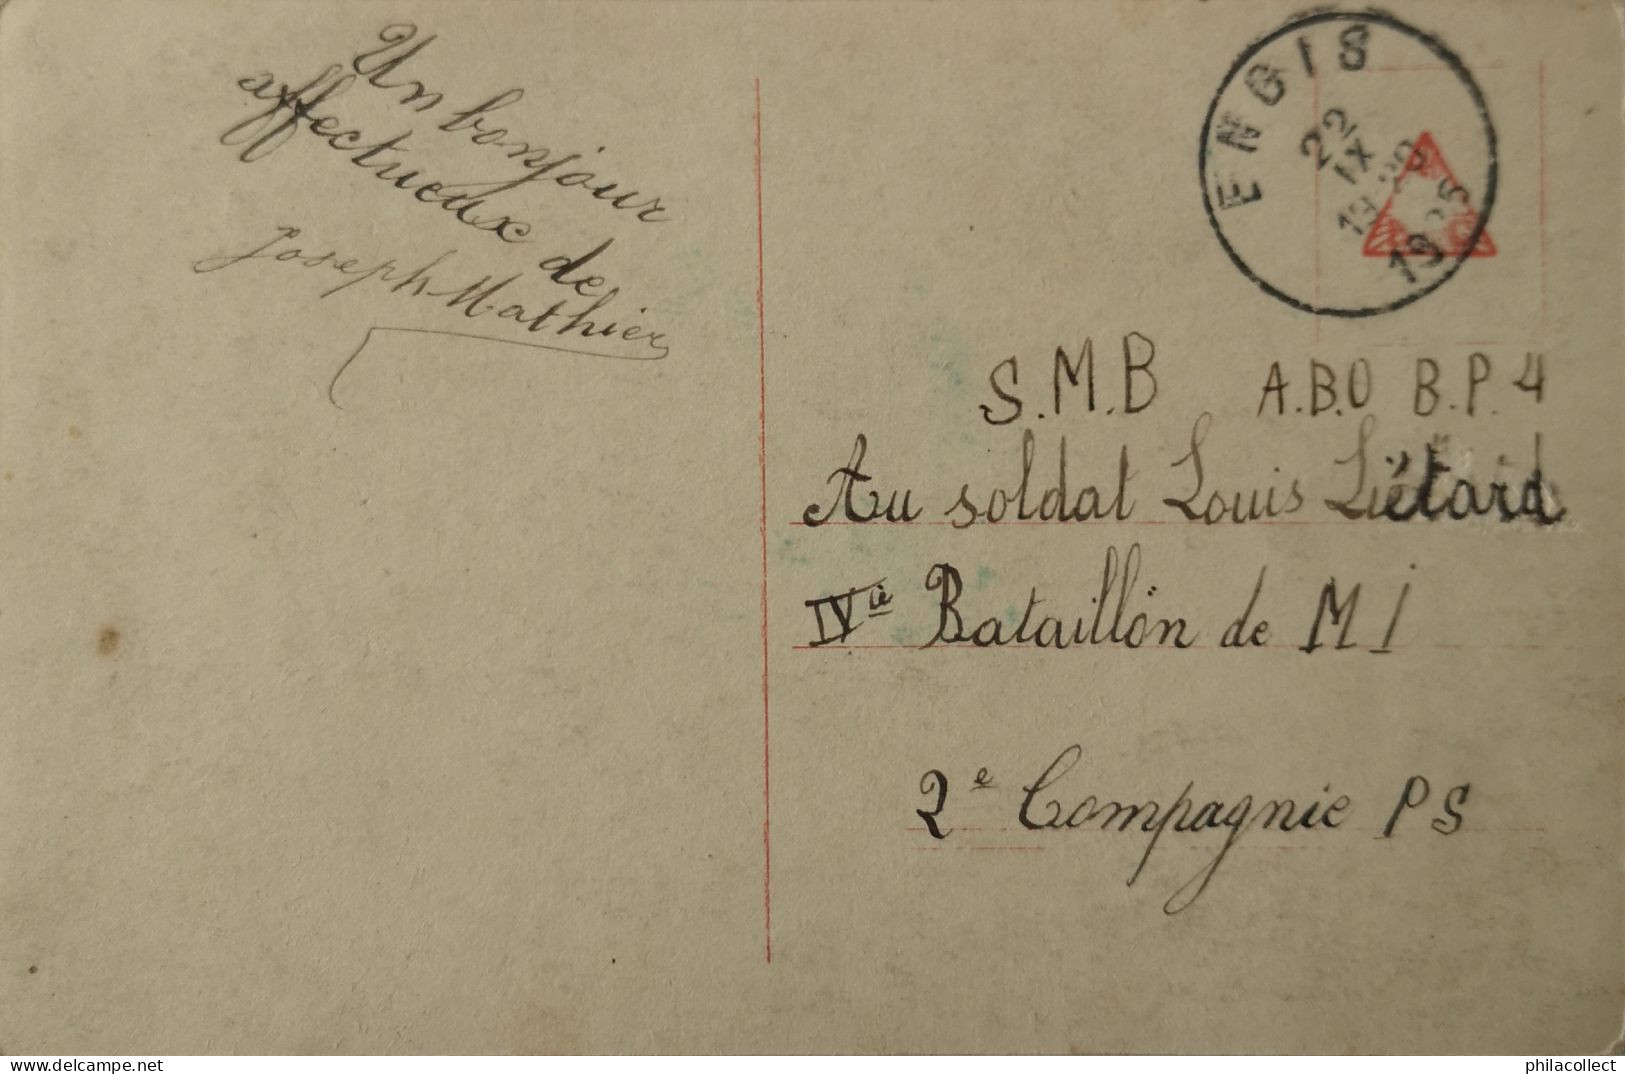 Un bonjour
affectueux de
Joseph Mathieu
ENGIS
22
IX
19
1925
S.M.B A.B.O B.P. 4
Au soldat Louis Liétard
IVie Bataillon de M I
2e Compagnie P S
delcampe.net
philacollect